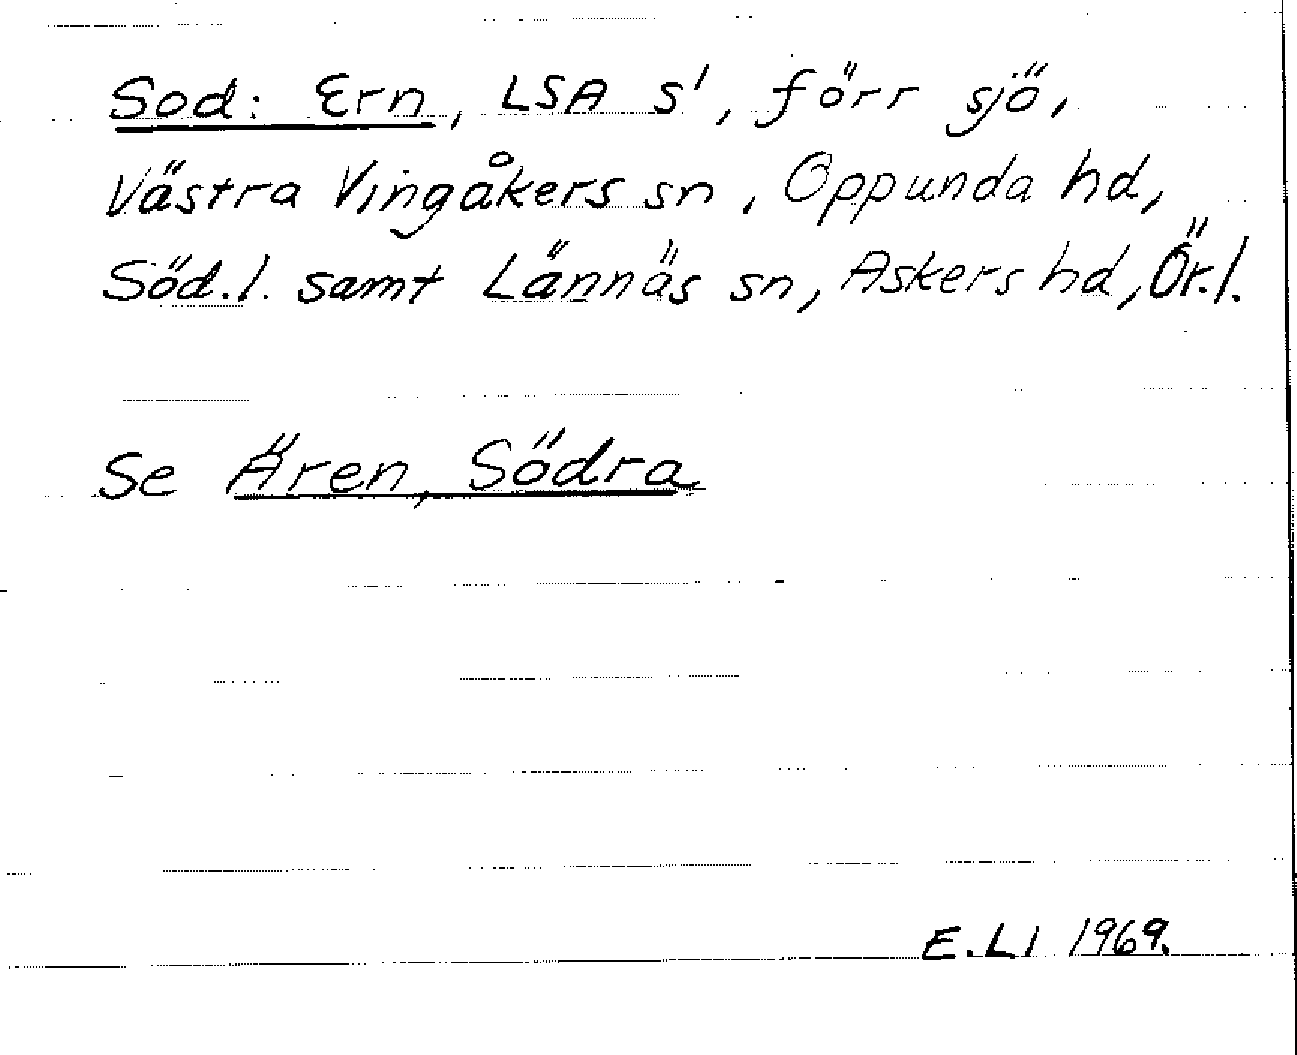 Sod: Ern, LSA s1, förr sjö,
Västra Vingåkers sn, Oppunda hd,
Söd.l. samt Lännäs sn, Askers hd, Ör.l.
Se Ären, Södra
E.Ll 1969.